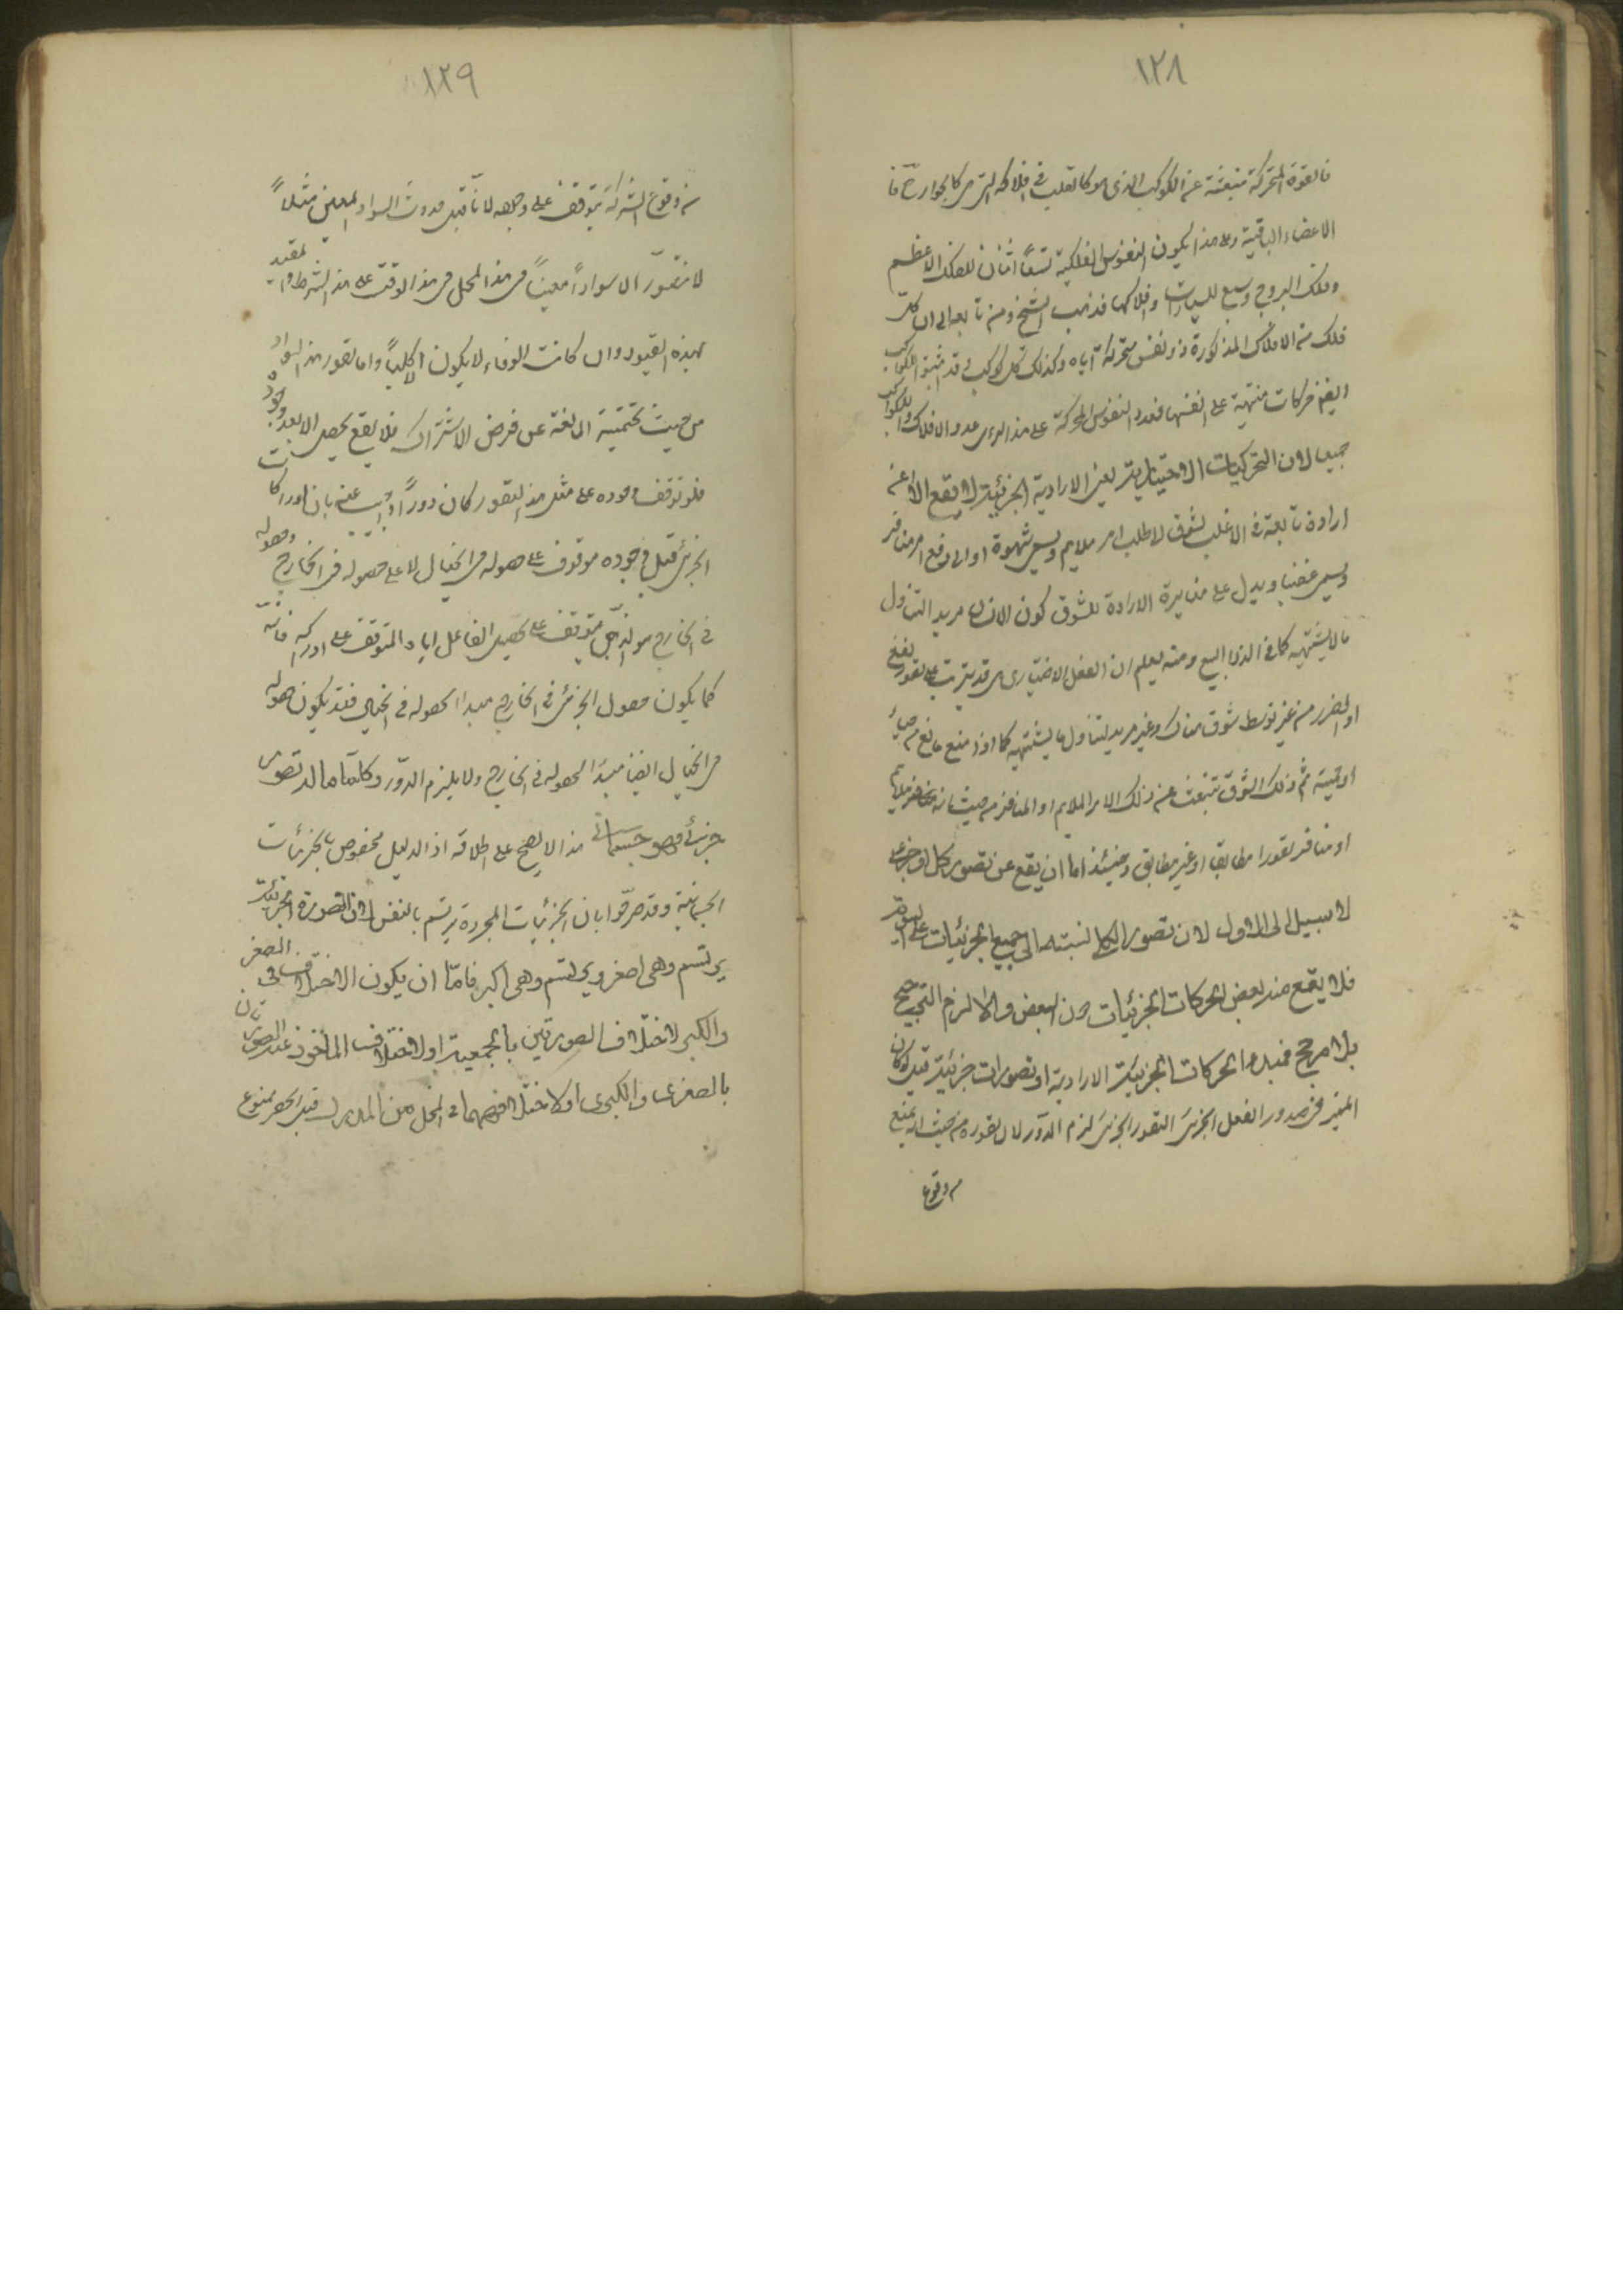 ١٢٨
فالقوة المتحركة منبعثة عن الكوكب الذى هو كالقلب فى افلاكه التى هى كالجوارح فا
الاعضاء الباقية وعلى هذا يكون النفوس الفلكية تسعًا اثنان للفلك الاعظم
وفلك البروج وسبع للسيارات وافلاكها فذهب الشيخ ومن تابعه الى ان كل
فلك من الافلاك المذكورة ذو نفس متحركة اياه وكذلك كل كوكب وقد اثبتوا للكواكب
ايضا حركات على انفسها فعدد النفوس المحركة على هذا الرءى عدد الافلاك والكواكب
جميعا لان التحريكات الاختيارية يعنى الارادية الجزئية لا يقع الا عن
ارادة تابعة فى الاغلب لشوق لا طلب امر ملايم ويسمى شهوة او الى دفع امر منافر
ويسمى غضبا ويدل على مغايرة الارادة للشوق كون الانسان مريد التناول
ما لا يشتهيه كما فى الدواء البشيع ومنه يعلم ان الفعل الاختيارى قد يترتب على تصور النفع
او الضرر من غير توسط شوق هناك وغير مريد لتناول ما يشتهيه كما اذا منع مانع من حياء
او حمية ثم ذلك الشوق تنبعث عن ذلك الامر الملايم او المنافر من حيث انه ملايم
او منافر تصورا مطابقا او غير مطابق وحينئذ اما ان يقع عن تصور كلى او جزئى
لا سبيل الى الاول لان تصور الكلى نسبته الى جميع الجزئيات على السوية
فلا يقع منه بعض الحركات الجزئيات دون البعض والا لزم الترجيح
بلا مرجح فمبدء الحركات الجزئية الارادية او تصورات جزئية قيل لو كان
المعتبر فى صدور الفعل الجزئى التصور الجزئى لزم الدور لان تصوره من حيث انه يمنع
من وقوع
١٢٩
من وقوع الشركة يتوقف على وجوده لانا قبل حدوث السواد المعين مثلاً
لا نتصور الا سواداً معيناً فى هذا المحل فى هذا الوقت على هذا الشرط والمقيد
بهذه القيود وان كانت الوفاء لا يكون الا كلياً واما تصور هذا السواد
من حيث شخصيته المانعة عن فرض الاشتراك فلا يقع يحصل الا بعد وجوده
فلو توقف وجوده على مثل هذا التصور كان دوراً واجيب عنه بان ادراكات
الجزئى قبل وجوده موقوف على حصوله فى الخيال لا على حصوله فى الخارج وحصوله
فى الخارج هو الذى يتوقف على تحصيل الفاعل اياه المتوقف على ادراكه فانه
كما يكون حصول الجزئى فى الخارج مبدا لحصوله فى الخيال فقد يكون حصوله
فى الخيال ايضا مبدا لحصوله فى الخارج ولا يلزم الدور وكلما ما له تصور
جزئى فهو جسمانى هذا لا يصح على اطلاقه اذ الدليل مخصوص بالجزئيات
الجسمانية وقد صرحوا بان الجزئيات المجردة يرتسم بالنفس لان الصورة الجزئية
يرتسم وهى اصغر ويرتسم وهى اكبر فاما ان يكون الاختلاف فى الصغر
والكبر لاختلاف الصورتين بالجمعية او لاختلاف الماخوذ عنه الصورتان
بالصغرى والكبرى او لاختلافهما فى المحل من المدرك قيل الحصر ممنوع